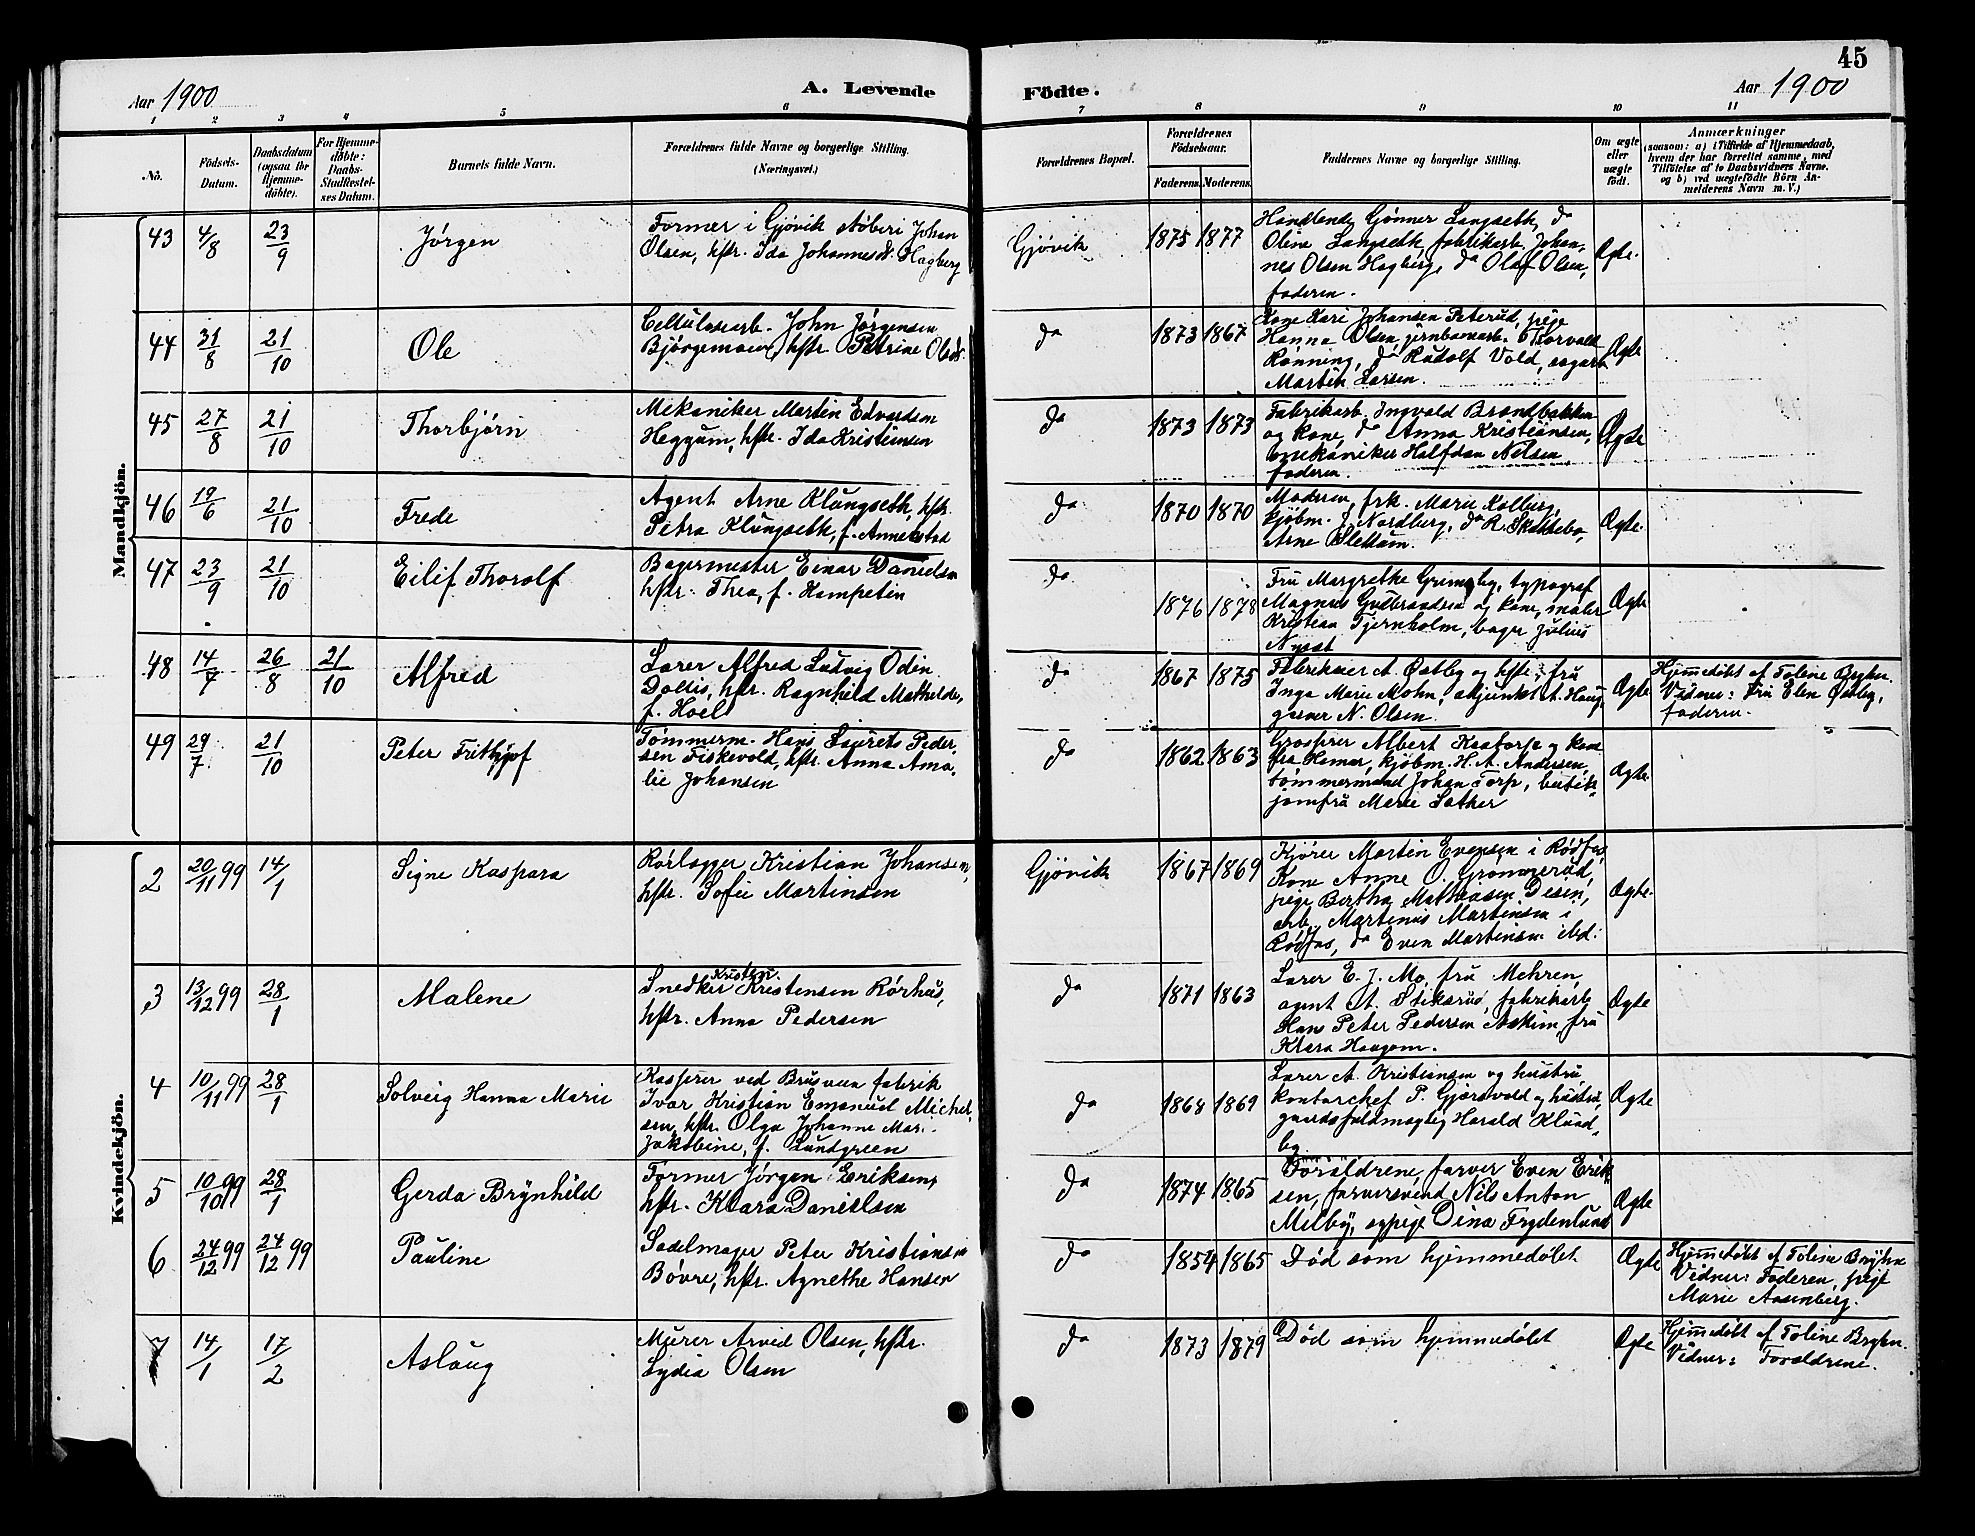 45
Aar 1900
A. Levende
Födte.
Aar 1900
1 2 3 4 5 6 7 8 9 10 11
No.
Födsels-
Datum.
Daabsdatum
(ogsaa for
Hjemme-
døbte).
For Hjemme-
døbte:
Daabs-
Stadfæstel-
ses Datum.
Barnets fulde Navn.
Forældrenes fulde Navne og borgerlige Stilling.
(Næringsvei.)
Forældrenes Bopæl.
Forældrenes
Födselsaar.
Faderens.
Moderens.
Faddernes Navne og borgerlige Stilling.
Om ægte
eller
uægte
født.
Anmærkninger
(saasom: a) i Tilfælde af Hjemmedaab,
hvem der har forrettet samme, med
Tilføielse af to Daabsvidners Navne.
og b) ved uægtefödte Börn An-
melderens Navn m. V.)
Mandkjön.
43 4/8 23/9 Jørgen
Former i Gjövik støberi Johan
Olsen, hstr. Ida Johannesd. Hagberg
Gjøvik 1875 1877
Handlende Gjønner Langseth, do
Oline Langseth, fabrikarb. Johan-
nes Olsen Hagberg, do Olaf Olsen,
faderen.
Ægte.
44 31/8 21/10 Ole
Cellulosearb. John Jørgensen
Bjørgemoen, hstr. Petrine Olsdr.
do 1873 1867
Kone Kari Johansen Peterud, pige
Hanna Olsen, jernbanearb. Thorvald
Rønning, do Rudolf Vold, sagarb.
Martin Larsen.
Ægte
45 27/8 21/10 Thorbjørn
Mekaniker Martin Edvardsen
Heggum, hstr. Ida Kristiansen
do 1873 1873
Fabrikarb. Ingvald Brandbakken
og kone, do Anna Kristiansen,
mekaniker Halfdan Nilsen
faderen.
Ægte
46 19/6 21/10 Frede
Agent Arne Klungseth, hstr.
Petra Klungseth, f. Annexstad
do 1870 1870
Moderen, frk. Marie Kolberg,
kjøbm. J. Nordberg, do R. Skattebo,
Arne Slettum.
Ægte.
47 23/9 21/10 Eilif Thorolf
Bagermester Einar Danielsen
hstr. Thea, f. Kampetin
do 1876 1878
Fru Margrethe Grimsby, typograf
Magnus Gulbrandsen og kone, maler
Kristian Tjernholm, bager Julius
Ægte
48 14/7 26/8 21/10 Alfred
Lærer Alfred Ludvig Odin
Dallis, hstr. Ragnhild Mathilde,
f. Hoel
do 1867 1875
Fabrikeier A. Østby og hstr., fru
Inga Marie Mohn, adjunkt A. Haug,
garver N. Olsen.
Ægte
Hjemmedøbt af Toline Bryhn.
Vidner: Fru Elen Østby,
faderen.
49 29/7 21/10 Peter Frithjof
Tømmerm. Hans Laurets Peder-
sen Fiskevold, hstr. Anna Ama-
lie Johansen
do 1862 1863
Grosserer Albert Kastorp og kone
fra Hamar, kjøbm. H. A. Andersen,
tømmermand Johan Torp, butik-
jomfru Marie Sæther
Ægte
Kvindekjön.
2 20/11 99 14/1 Signe Kaspara
Rørlægger Kristian Johansen,
hstr. Sofie Martinsen
Gjøvik 1867 1869
Kjører Martin Evensen i Rødfos,
Kone Anne O. Grønnerud,
pige Bertha Mathiasen Desen,
arb. Martenius Martensen i
Rødfos, do Even Martinsen ibd.
Ægte.
3 13/12 99 28/1 Malene
Kristen
Snedker Kristensen Rørhus,
hstr. Anna Pedersen
do 1871 1863
Lærer E. J. Mo, fru Mehren,
agent A. Stiksrud, fabrikarb.
Hans Peter Pedersen Askim, fru
Klara Haugom.
Ægte
4 10/11 99 28/1 Solveig Hanna Marie
Kasserer ved Brusveen fabrik
Ivar Kristian Emanuel Michel-
sen, hstr. Olga Johanne Mar.
Jakobine, f. Lundgreen
do 1868 1869
Lærer A. Kristiansen og hustru
kontorchef P. Gjørsvold og hustru,
gaardsfuldmægtig Harald Klund-
by
Ægte
5 10/10 99 28/1 Gerda Brynhild
Former Jørgen Eriksen,
hstr. Klara Danielsen
do 1874 1865
Forældrene, farver Even Erik-
sen, farversvend Nils Anton
Milby, sypige Dina Frydenlund
Ægte
6 24/12 99 24/12 99 Pauline
Sadelmager Peter Kristiansen
Bøvre, hstr. Agnethe Hansen
do 1854 1865
Død som hjemmedøbt
Ægte
Hjemmedøbt af Toline Bryhn
Vidner: Faderen, pige
Marie Aasenberg.
7 14/1 17/2 Aslaug
Murer Arvid Olsen, hstr.
Lydia Olsen
do 1873 1879
Død som hjemmedøbt
Ægte
Hjemmedøbt af Toline Bryhn.
Vidner: Forældrene.